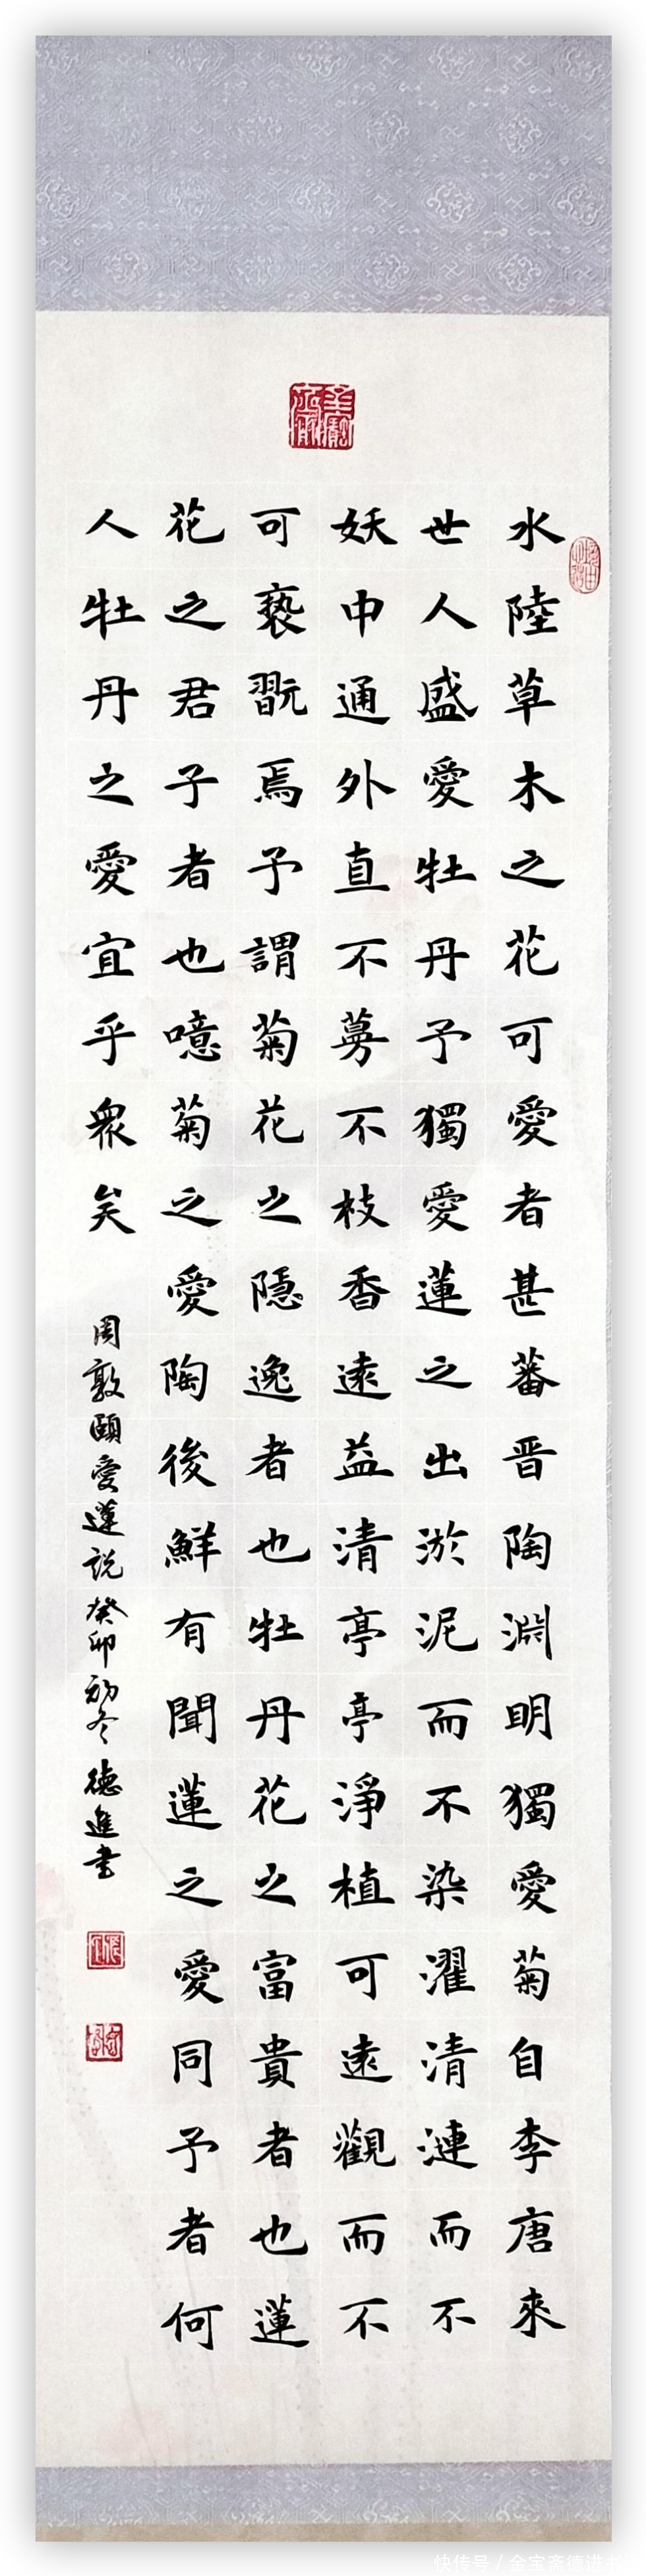 水陸草木之花可愛者甚蕃晋陶淵明獨愛菊自李唐來
世人盛愛牡丹予獨愛蓮之出淤泥而不染濯清漣而不
妖中通外直不蔓不枝香遠益清亭亭淨植可遠觀而不
可褻翫焉予謂菊花之隱逸者也牡丹花之富貴者也蓮
花之君子者也噫菊之愛陶後鮮有聞蓮之愛同予者何
人牡丹之愛宜乎衆矣
周敦頤愛蓮説癸卯初冬德進書